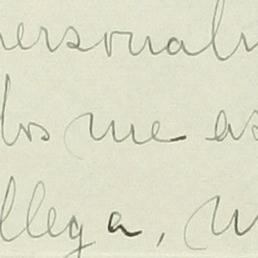 personal
los me as
llega,